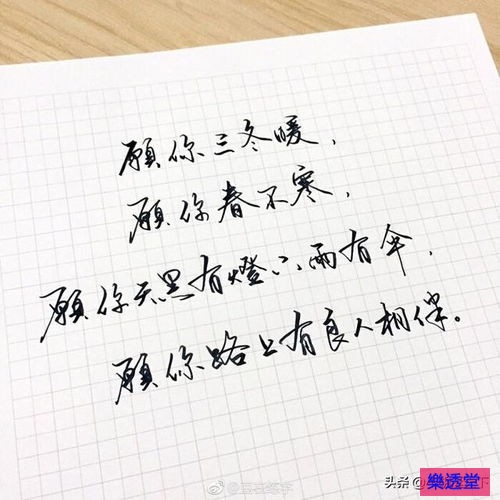 願你三冬暖，
願你春不寒，
願你天黑有燈下雨有傘，
願你路上有良人相伴。
頭条
樂透堂
下